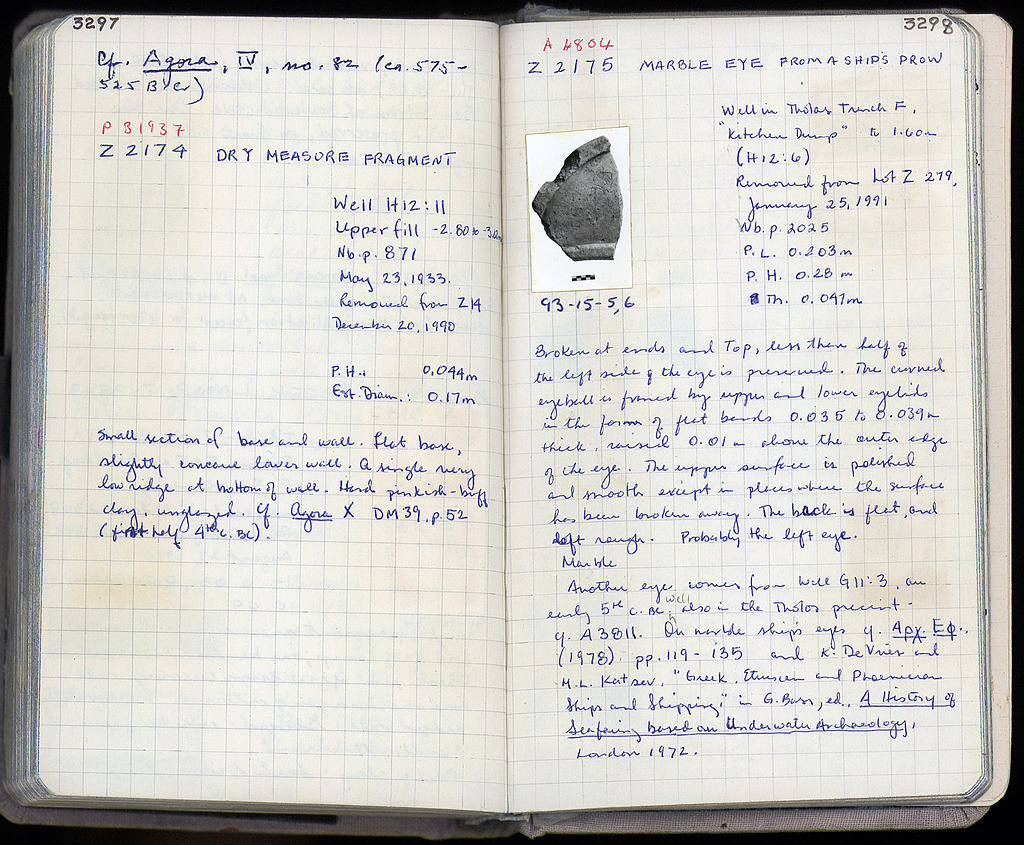 3297
cf. Agora, IV, no. 82 (ca. 575-
525 B
P 31937
Z 2174 DRY MEASURE FRAGMENT
Well H12:11
Upper fill -2.80 to
Nb.p. 871
May 23, 1933.
Removed from Z14
December 20, 1990
P.H.: 0.044m
Est. Diam.: 0.17m
Small section of base and wall. Flat base,
slightly concave lower wall. A single very
low ridge at bottom of wall. Hard pinkish-buff
clay, unglazed. cf. Agora X DM 39, p. 52
(first half 4th c. BC).
3298
A 4804
Z 2175 MARBLE EYE FROM A SHIP'S PROW
Well in Tholos Trench F,
"Kitchen Dump" to 1.60m
(H12:6)
Removed from Lot Z 279,
January 25, 1991
Nb.p. 2025
P.L. 0.203m
P.H. 0.28m
Th. 0.047m
93-15-5,6
Broken at ends and Top, less than half of
the left side of the eye is preserved. The curved
eyeball is framed by upper and lower eyelids
in the form of flat bands 0.035 to 0.039m
thick, raised 0.01m above the outer edge
of the eye. The upper surface is polished
and smooth except in places where the surface
has been broken away. The back is flat, and
left rough. Probably the left eye.
Marble
Another eye comes from Well G11:3, an
early 5th c. BC well also in the Tholos precinct -
cf. A3811. On marble ship's eyes cf. Αρχ. Εφ.,
(1978) pp. 119-135 and K. DeVries and
M.L. Katzev, "Greek, Etruscan and Phoenician
Ships and Shipping," in G. Bass, ed., A History of
Seafaring based on Underwater Archaeology,
London 1972.